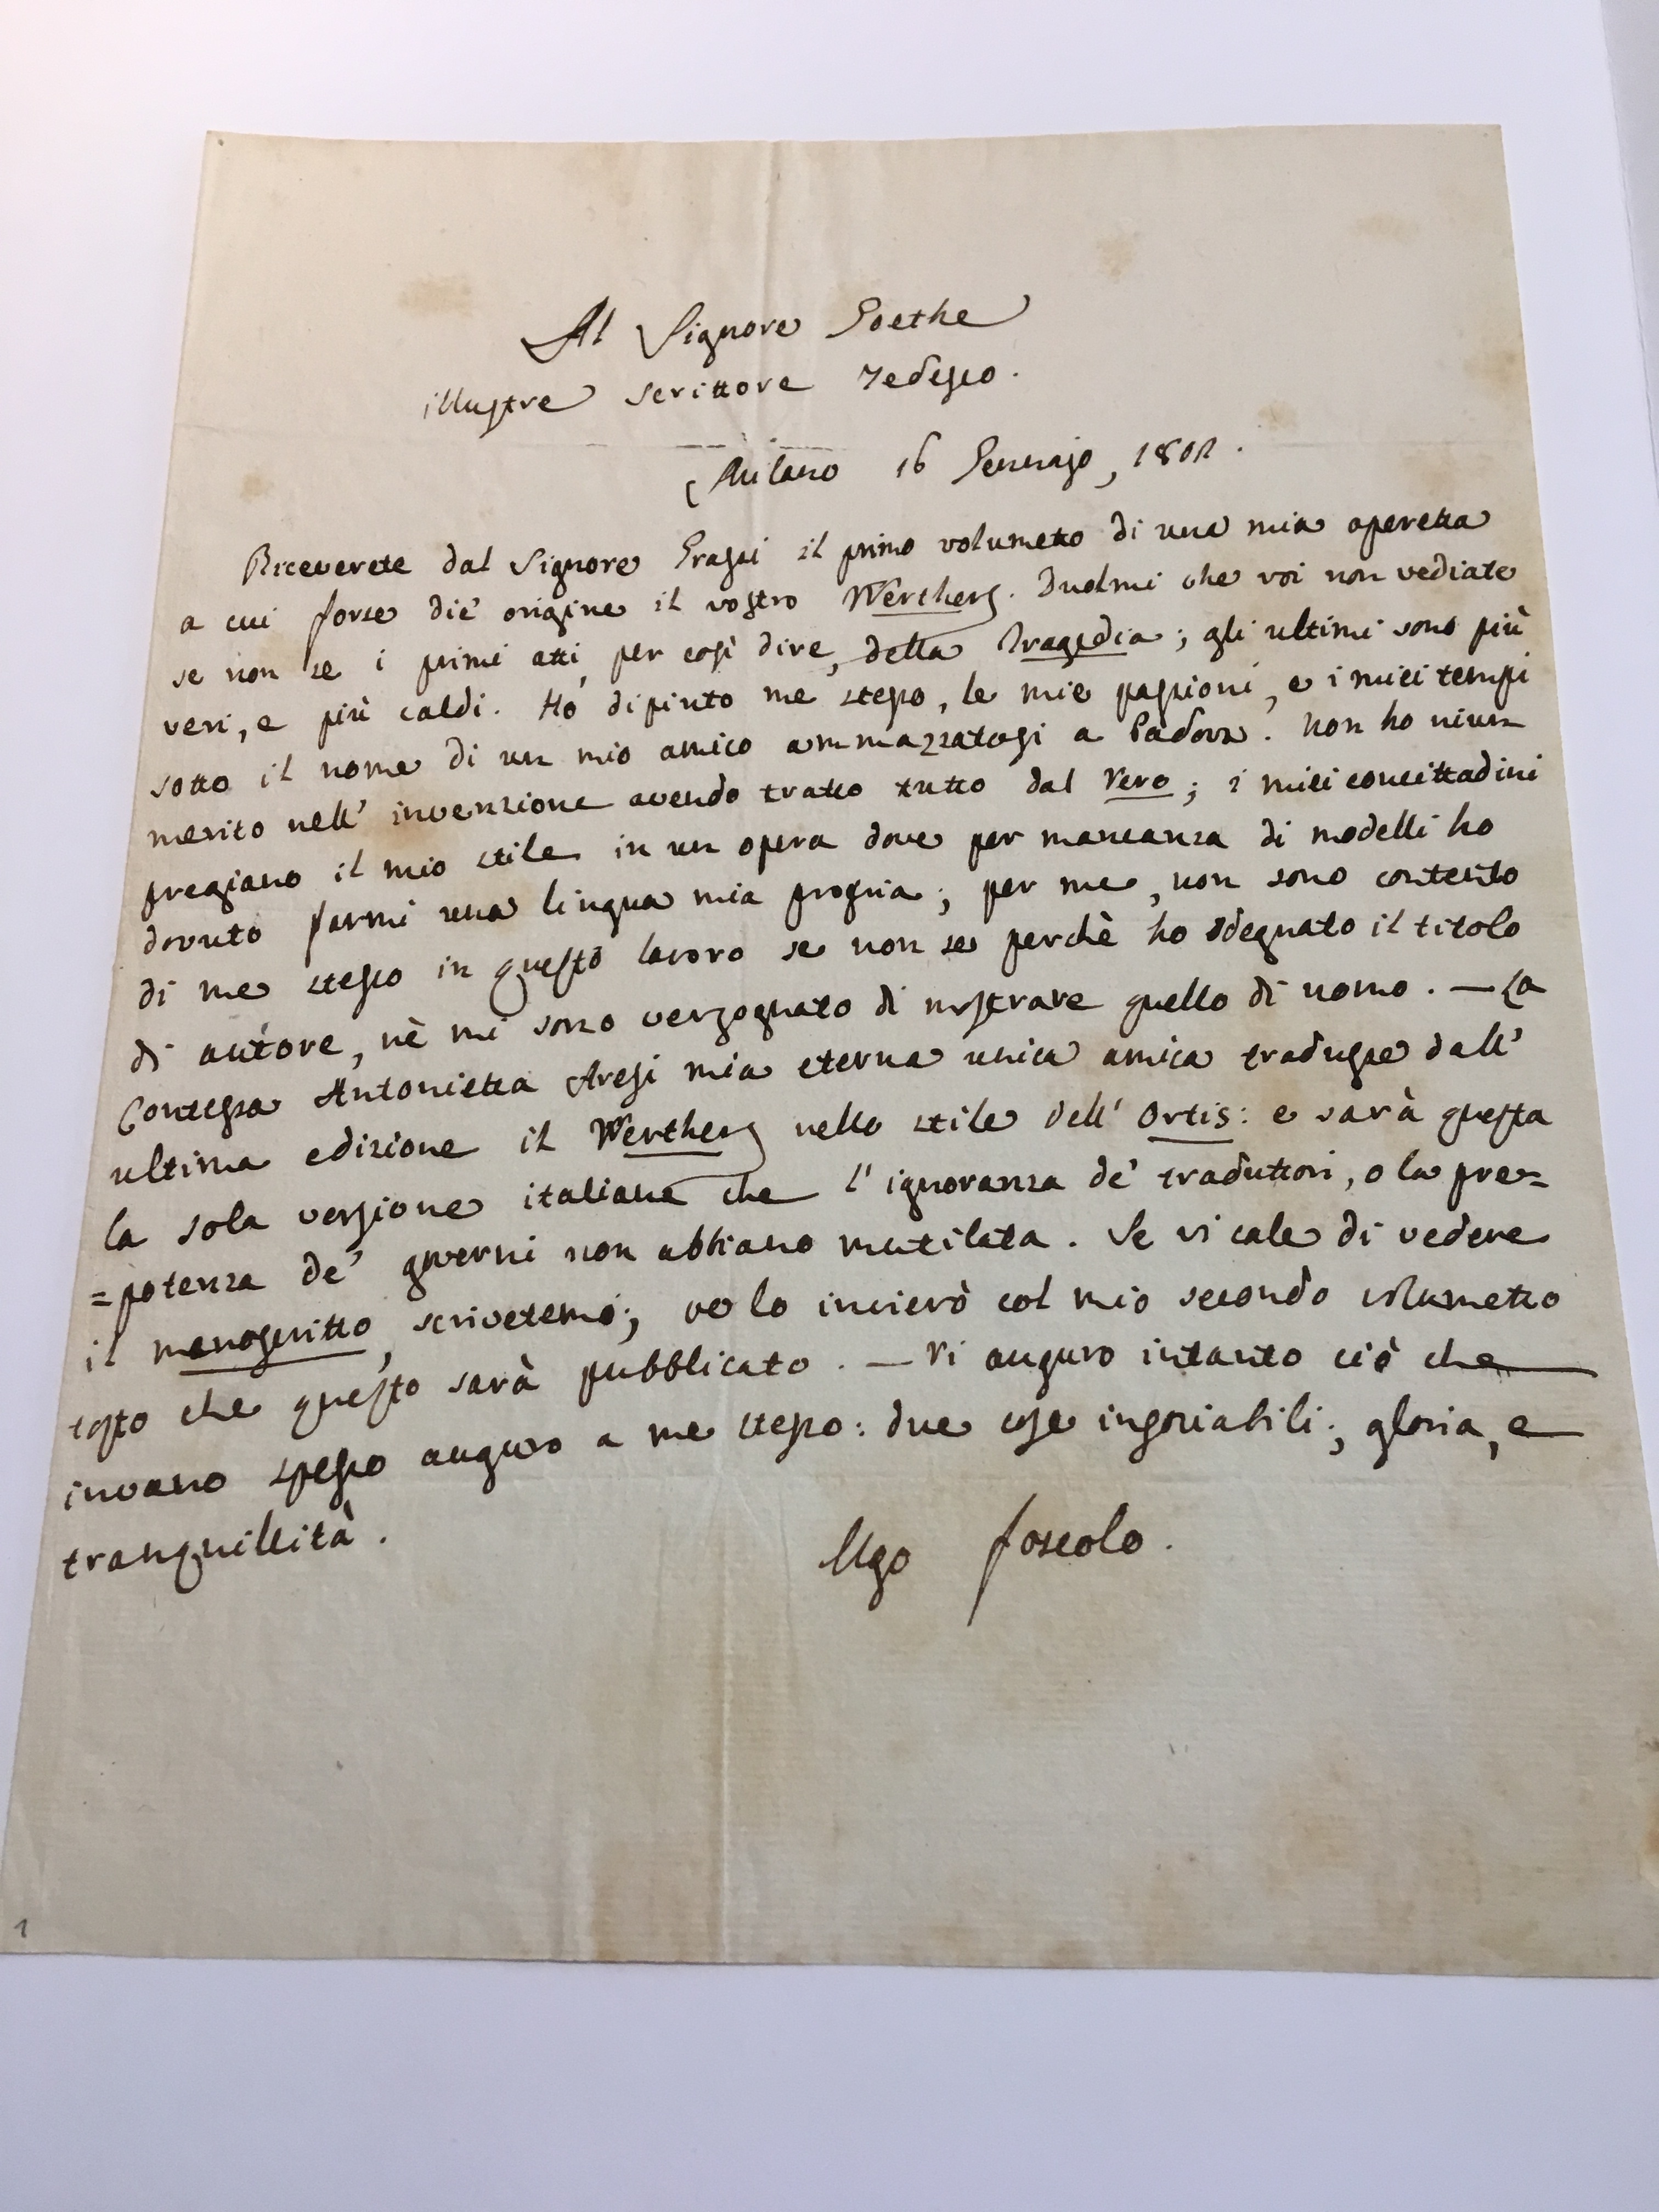 Al Signore Goethe
illustre scrittore Tedesco.
Milano 16 Gennajo, 1802.
Riceverete dal Signore Grassi il primo volumetto di una mia operetta
a cui forse diè origine il vostro Werther. Duolmi che voi non vediate
se non se i primi atti, per così dire, della Tragedia; gli ultimi sono più
veri, e più caldi. Ho dipinto me stesso, le mie passioni, e i miei tempi
sotto il nome di un mio amico ammazzatosi a Padova. Non ho niun
merito nell' invenzione avendo tratto tutto dal vero; i miei concittadini
pregiano il mio stile in un opera dove per mancanza di modelli ho
dovuto farmi una lingua mia propria; per me, non sono contento
di me stesso in questo lavoro se non se perchè ho sdegnato il titolo
di autore, nè mi sono vergognato di mostrare quello di uomo. — La
Contessa Antonietta Aresi mia eterna unica amica tradusse dall'
ultima edizione il Werther nello stile dell' Ortis: e sarà questa
la sola versione italiana che l' ignoranza de' traduttori, o la pre=
=potenza de' governi non abbiano mutilata. Se vi cale di vedere
il manoscritto, scrivetemo; ve lo invierò col mio secondo volumetto
tosto che questo sarà pubblicato. — Vi auguro intanto ciò che
invano spesso auguro a me stesso: due cose insociabili; gloria, e
tranquillità.
Ugo Foscolo.
1